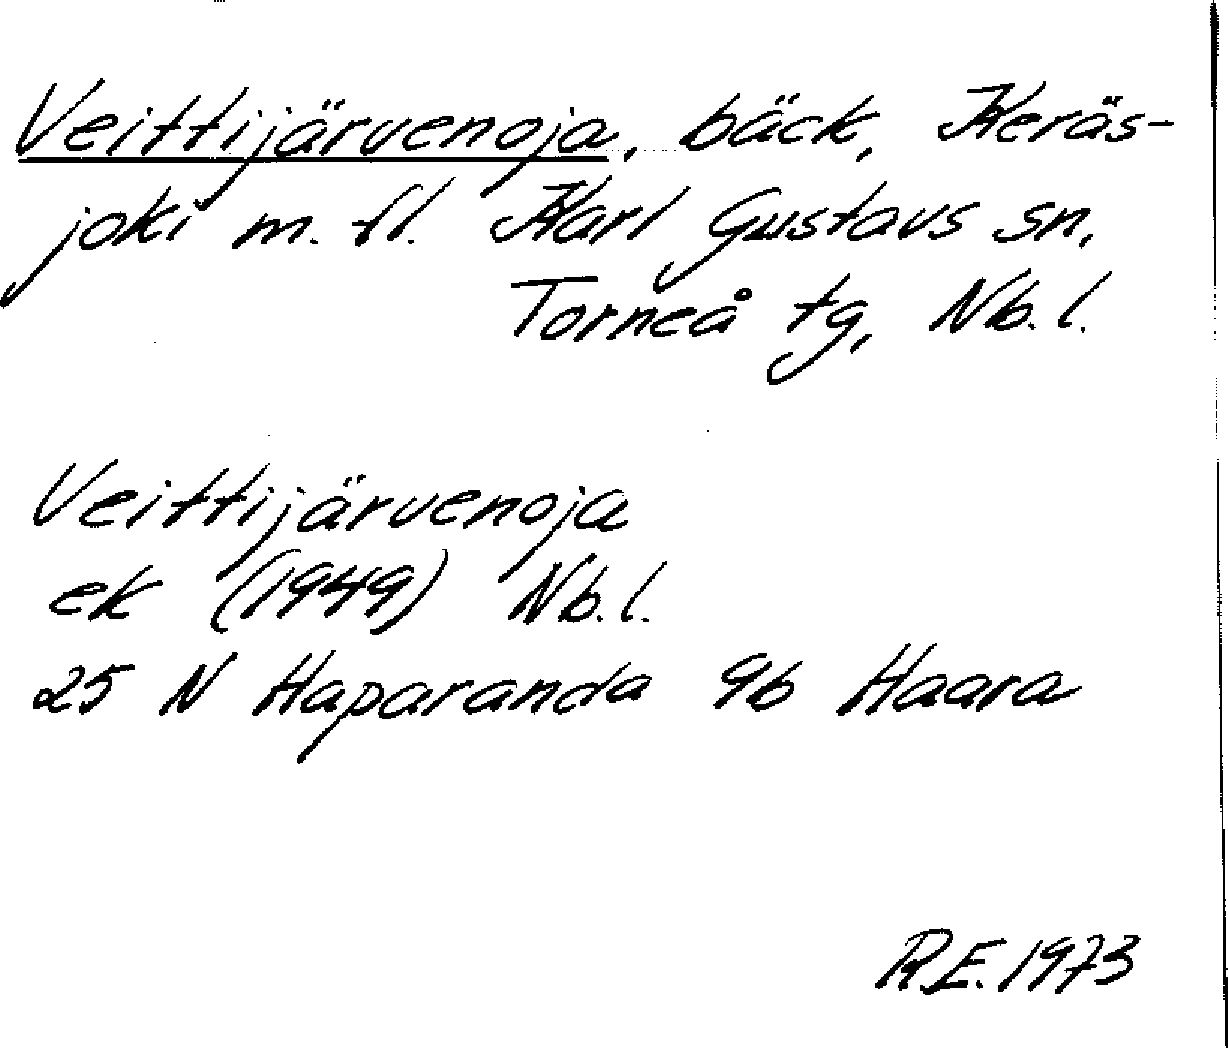 Veittijärvenoja, bäck, Keräs-
joki m. fl. Karl Gustavs sn,
Torneå tg, Nb. l.
Veittijärvenoja
ek (1949) Nb. l.
25 N Haparanda 9b Haara
R.E. 1973